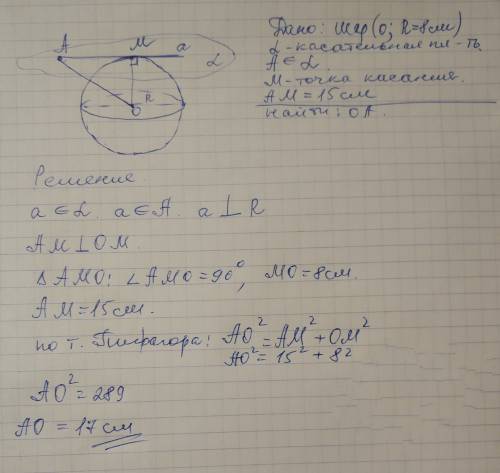 Дано: шар (O; R=8см)
α - касательная пл-ть.
A ∈ α.
М-точка касания.
AM = 15 см
Найти: OA.
A M a α
R
O
Решение
a ∈ α. a ∈ A. a ⊥ R
AM ⊥ OM.
Δ AMO: ∠ AMO = 90°, MO = 8 см.
AM = 15 см.
по т. Пифагора: AO² = AM² + OM²
AO² = 15² + 8²
AO² = 289
AO = 17 см